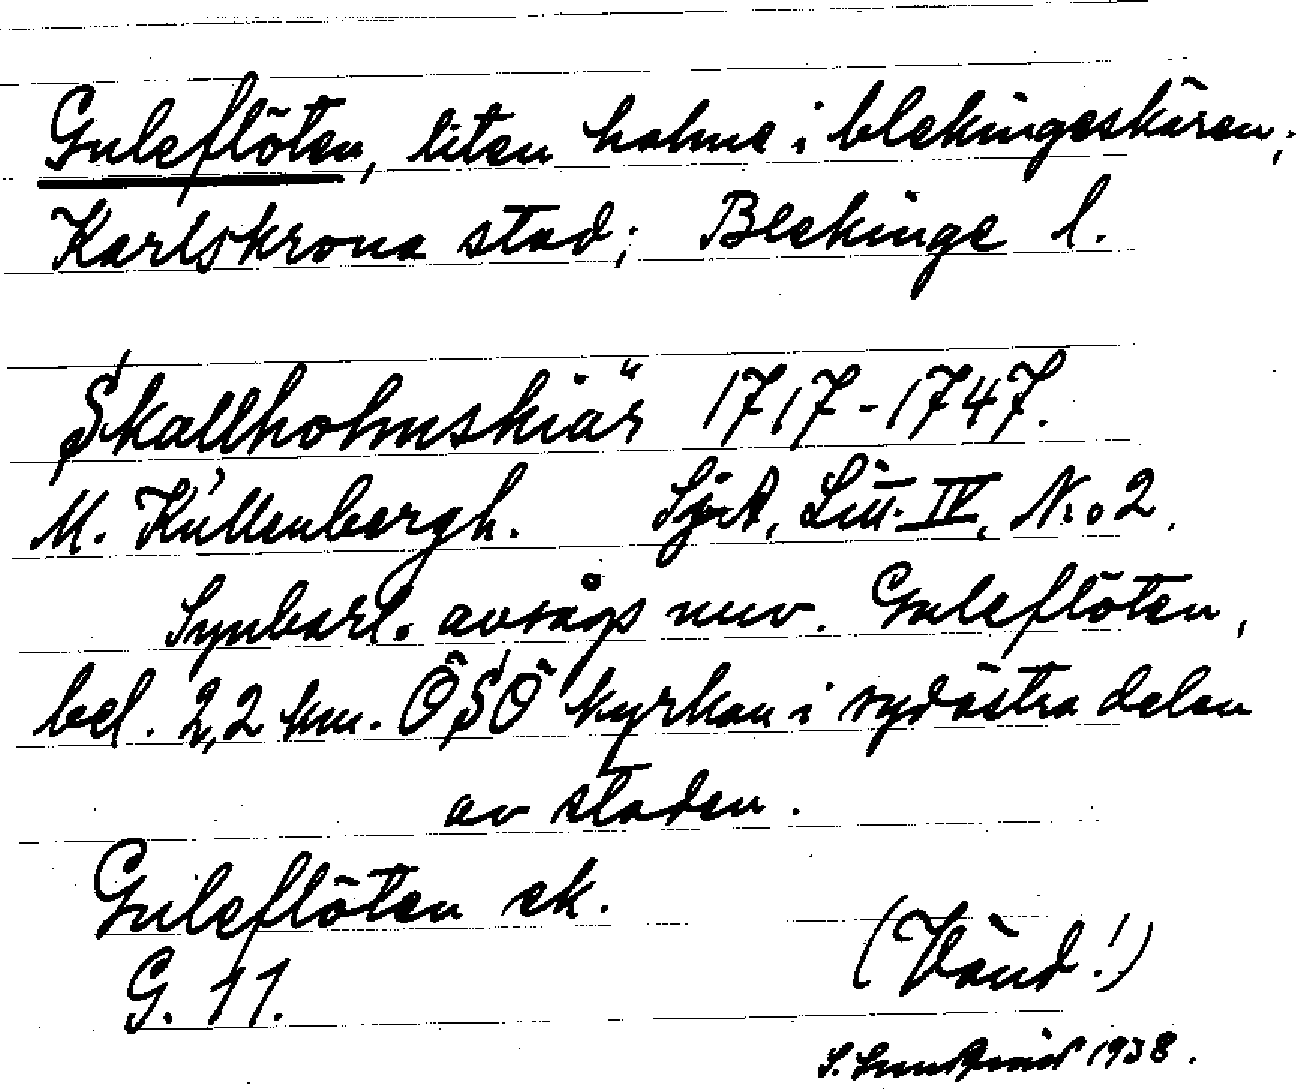 Guleflöten, liten holme i blekingeskären;
Karlskrona stad; Blekinge l.
Skallholmskiär 1717-1747.
M. Kullenbergh. SjöA, Litt. IV, N:o 2.
Synbarl. avsågs nuv. Guleflöten,
bel. 2,2 km. ÖSÖ kyrkan i sydöstra delen
av staden.
Guleflöten ek.
G. 11.
(Vänd!)
S. 1938.